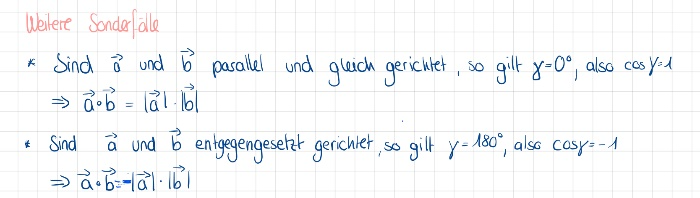 Weitere Sonderfälle
* Sind a⃗ und b⃗ parallel und gleich gerichtet, so gilt γ=0°, also cosγ=1
⇒ a⃗ ∘ b⃗ = |a⃗| · |b⃗|
* Sind a⃗ und b⃗ entgegengesetzt gerichtet, so gilt γ=180°, also cosγ=-1
⇒ a⃗ ∘ b⃗ = -|a⃗| · |b⃗|